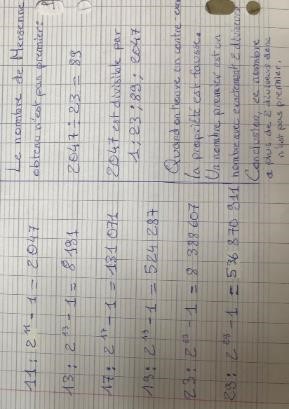 11 : 2¹¹ - 1 = 2047
13 : 2¹³ - 1 = 8191
17 : 2¹⁷ - 1 = 131 071
19 : 2¹⁹ - 1 = 524 287
23 : 2²³ - 1 = 8 388 607
29 : 2²⁹ - 1 = 536 870 911
Le nombre de Mersenne
obtenu n'est pas premier :
2047 : 23 = 89
2047 est divisible par
1 ; 23 ; 89 ; 2047
Quand on trouve un contre
la propriété est fausse.
Un nombre premier est un
nombre avec exactement 2 diviseurs
Conclusion, ce nombre
a plus de 2 diviseurs donc
n'est pas premier.